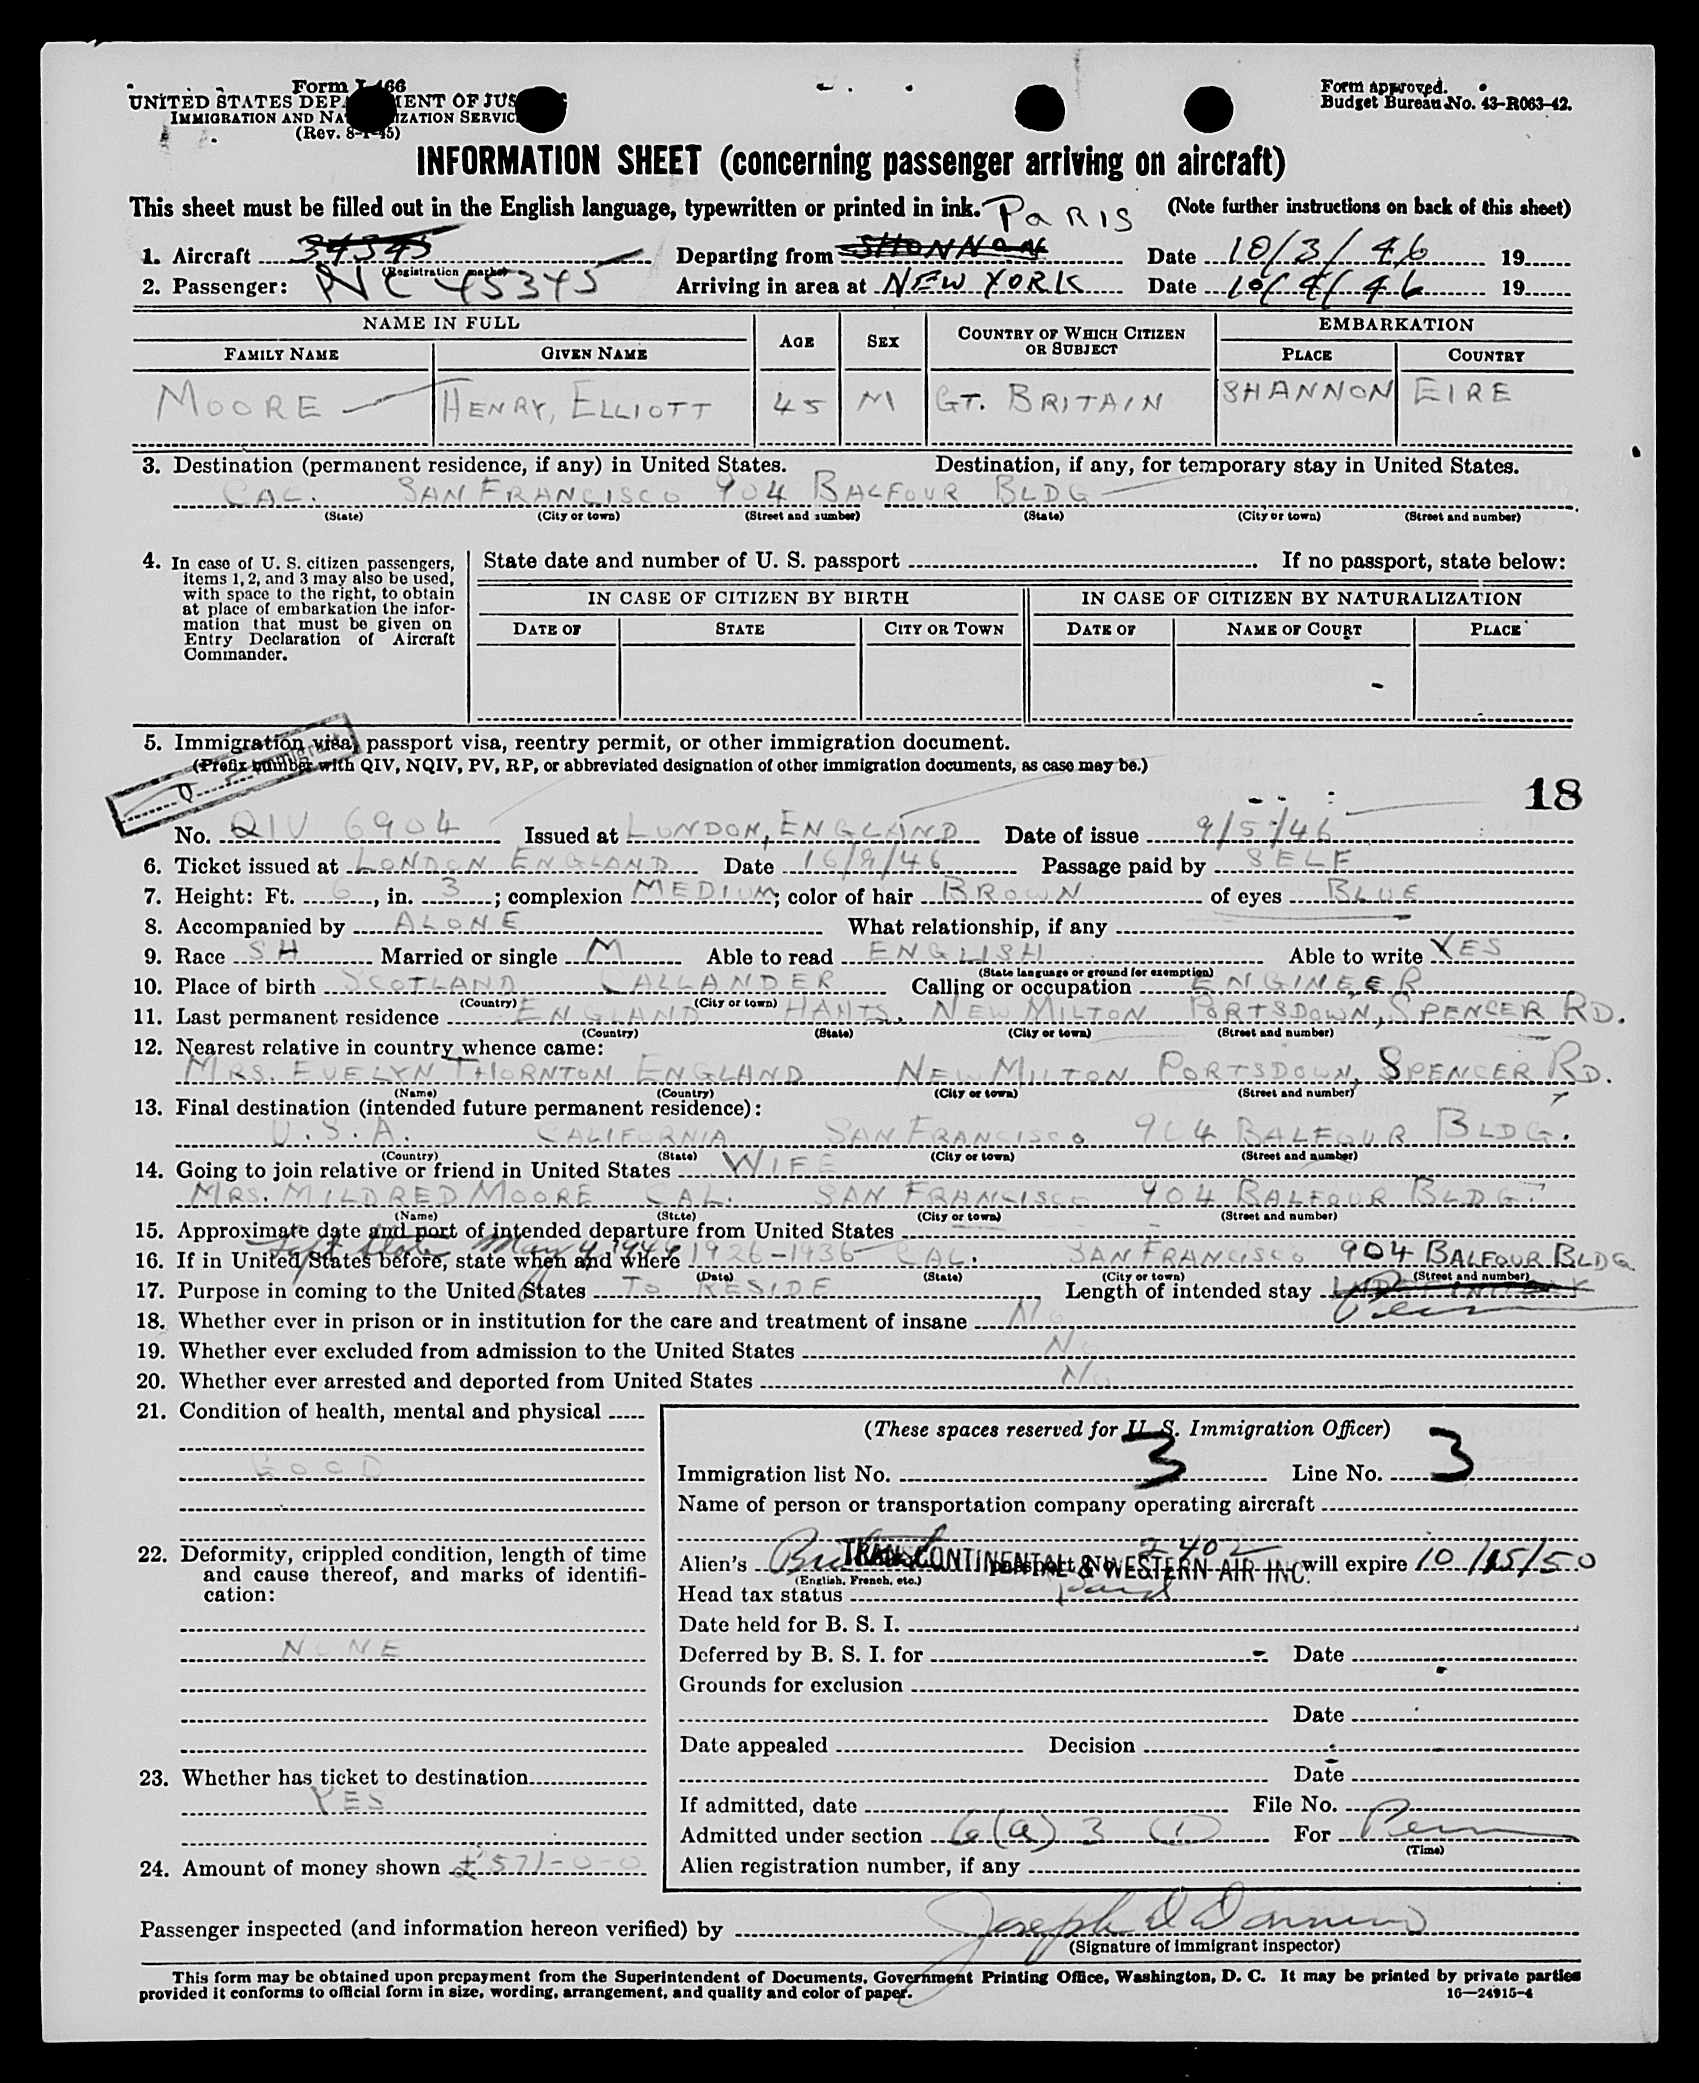 Form I-466
UNITED STATES DEPARTMENT OF JUSTICE
IMMIGRATION AND NATURALIZATION SERVICE
(Rev. 8-1-45)
Form approved.
Budget Bureau No. 43-R063-42.
INFORMATION SHEET (concerning passenger arriving on aircraft)
This sheet must be filled out in the English language, typewritten or printed in ink. (Note further instructions on back of this sheet)
PARIS
1. Aircraft 34345 Departing from SHONNON Date 10/3/46 19
(Registration marks)
2. Passenger: NC 45345 Arriving in area at NEW YORK Date 10/4/46 19
NAME IN FULL AGE SEX COUNTRY OF WHICH CITIZEN OR SUBJECT EMBARKATION
FAMILY NAME GIVEN NAME PLACE COUNTRY
MOORE HENRY, ELLIOTT 45 M GT. BRITAIN SHANNON EIRE
3. Destination (permanent residence, if any) in United States. Destination, if any, for temporary stay in United States.
CAL. SAN FRANCISCO 904 BALFOUR BLDG
(State) (City or town) (Street and number) (State) (City or town) (Street and number)
4. In case of U. S. citizen passengers, items 1, 2, and 3 may also be used, with space to the right, to obtain at place of embarkation the information that must be given on Entry Declaration of Aircraft Commander.
State date and number of U. S. passport If no passport, state below:
IN CASE OF CITIZEN BY BIRTH IN CASE OF CITIZEN BY NATURALIZATION
DATE OF STATE CITY OR TOWN DATE OF NAME OF COURT PLACE
5. Immigration visa, passport visa, reentry permit, or other immigration document.
(Prefix number with QIV, NQIV, PV, RP, or abbreviated designation of other immigration documents, as case may be.)
Q Immigrant
18
No. QIV 6904 Issued at LONDON, ENGLAND Date of issue 9/5/46
6. Ticket issued at LONDON ENGLAND Date 16/9/46 Passage paid by SELF
7. Height: Ft. 6, in. 3; complexion MEDIUM; color of hair BROWN of eyes BLUE
8. Accompanied by ALONE What relationship, if any
9. Race SH Married or single M Able to read ENGLISH Able to write YES
(State language or ground for exemption)
10. Place of birth SCOTLAND CALLANDER Calling or occupation ENGINEER
(Country) (City or town)
11. Last permanent residence ENGLAND HANTS. NEW MILTON PORTSDOWN, SPENCER RD.
(Country) (State) (City or town) (Street and number)
12. Nearest relative in country whence came:
MRS. EVELYN THORNTON ENGLAND NEW MILTON PORTSDOWN, SPENCER RD.
(Name) (Country) (City or town) (Street and number)
13. Final destination (intended future permanent residence):
U.S.A. CALIFORNIA SAN FRANCISCO 904 BALFOUR BLDG.
(Country) (State) (City or town) (Street and number)
14. Going to join relative or friend in United States WIFE
MRS. MILDRED MOORE CAL. SAN FRANCISCO 904 BALFOUR BLDG.
(Name) (State) (City or town) (Street and number)
15. Approximate date and port of intended departure from United States
Left States May 4, 1946
16. If in United States before, state when and where 1926-1936 CAL. SAN FRANCISCO 904 BALFOUR BLDG
(Date) (State) (City or town) (Street and number)
17. Purpose in coming to the United States TO RESIDE Length of intended stay Perm
18. Whether ever in prison or in institution for the care and treatment of insane No
19. Whether ever excluded from admission to the United States No
20. Whether ever arrested and deported from United States No
21. Condition of health, mental and physical
GOOD
22. Deformity, crippled condition, length of time and cause thereof, and marks of identification:
NONE
23. Whether has ticket to destination
YES
24. Amount of money shown £571-0-0
(These spaces reserved for U. S. Immigration Officer)
Immigration list No. 3 Line No. 3
Name of person or transportation company operating aircraft
TRANSCONTINENTAL & WESTERN AIR INC.
Alien's British passport No. 2402 will expire 10/15/50
(English, French, etc.)
Head tax status paid
Date held for B. S. I.
Deferred by B. S. I. for Date
Grounds for exclusion
Date
Date appealed Decision
Date
If admitted, date File No.
Admitted under section 6(a) 3 (1) For Perm
(Time)
Alien registration number, if any
Passenger inspected (and information hereon verified) by Joseph D
(Signature of immigrant inspector)
This form may be obtained upon prepayment from the Superintendent of Documents, Government Printing Office, Washington, D. C. It may be printed by private parties
provided it conforms to official form in size, wording, arrangement, and quality and color of paper.
16—24915-4